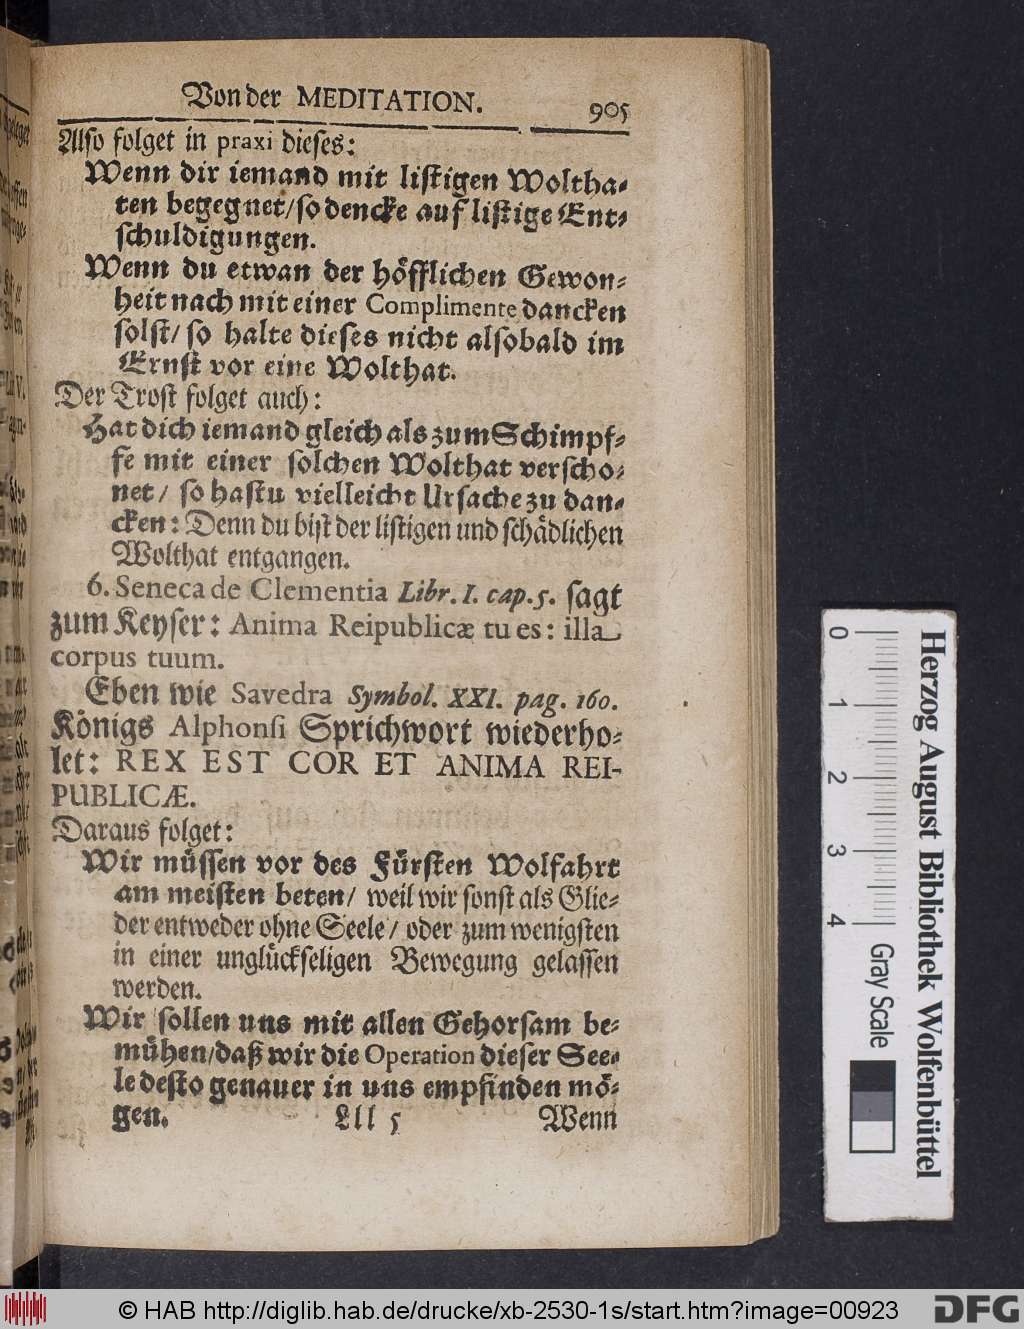 Von der MEDITATION. 905
Also folget in praxi dieses:
Wenn dir iemand mit listigen Woltha-
ten begegnet/ so dencke auf listige Ent-
schuldigungen.
Wenn du etwan der höfflichen Gewon-
heit nach mit einer Complimente dancken
solst/ so halte dieses nicht alsobald im
Ernst vor eine Wolthat.
Der Trost folget auch:
Hat dich iemand gleich als zum Schimpf-
fe mit einer solchen Wolthat verscho-
net/ so hastu vielleicht Ursache zu dan-
cken: Denn du bist der listigen und schädlichen
Wolthat entgangen.
6. Seneca de Clementia Libr. I. cap. 5. sagt
zum Keyser: Anima Reipublicæ tu es: illa
corpus tuum.
Eben wie Savedra Symbol. XXI. pag. 160.
Königs Alphonsi Sprichwort wiederho-
let: REX EST COR ET ANIMA REI-
PUBLICÆ.
Daraus folget:
Wir müssen vor des Fürsten Wolfahrt
am meisten beten/ weil wir sonst als Glie-
der entweder ohne Seele/ oder zum wenigsten
in einer unglückseligen Bewegung gelassen
werden.
Wir sollen uns mit allen Gehorsam be-
mühen/ daß wir die Operation dieser See-
le desto genauer in uns empfinden mö-
gen. Lll 5 Wenn
0 1 2 3 4 Gray Scale
Herzog August Bibliothek Wolfenbüttel
© HAB http://diglib.hab.de/drucke/xb-2530-1s/start.htm?image=00923 DFG